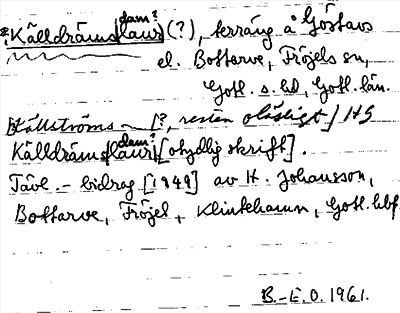 *Källdräms[laur] dam? (?), terräng å Göstavs
el. Bottarve, Fröjels sn,
Gotl. s. hd, Gotl. län.
Källströms ~ [?, resten oläsligt] HS
Källdräms[laur] dam? [otydlig skrift].
Tävl.-bidrag [1949] av H. Johansson,
Bottarve, Fröjel, Klintehamn, Gotl. hbf
B.-E.O. 1961.